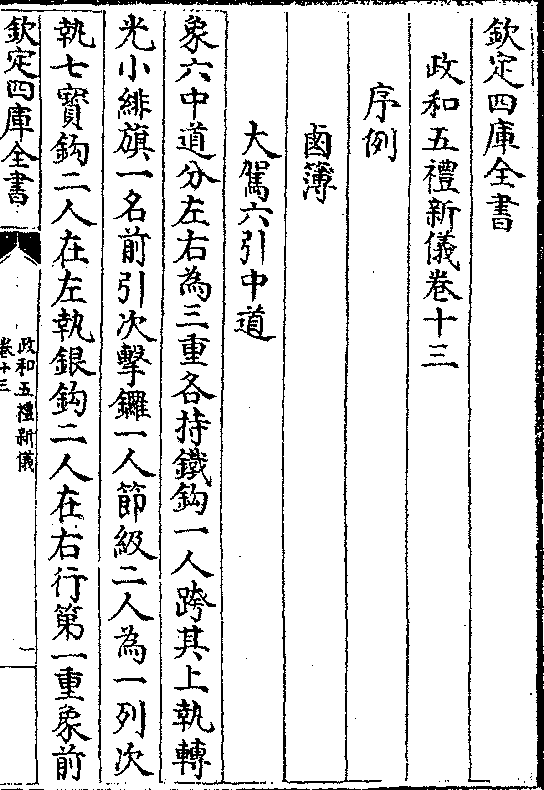 欽定四庫全書
政和五禮新儀卷十三
序例
鹵簿
大駕六引中道
象六中道分左右為三重各持鐵鈎一人跨其上執轉
光小緋旗一名前引次擊鑼一人節級二人為一列次
執七寳鈎二人在左執銀鈎二人在右行第一重象前
欽定四庫全書
政和五禮新儀
卷十三
一